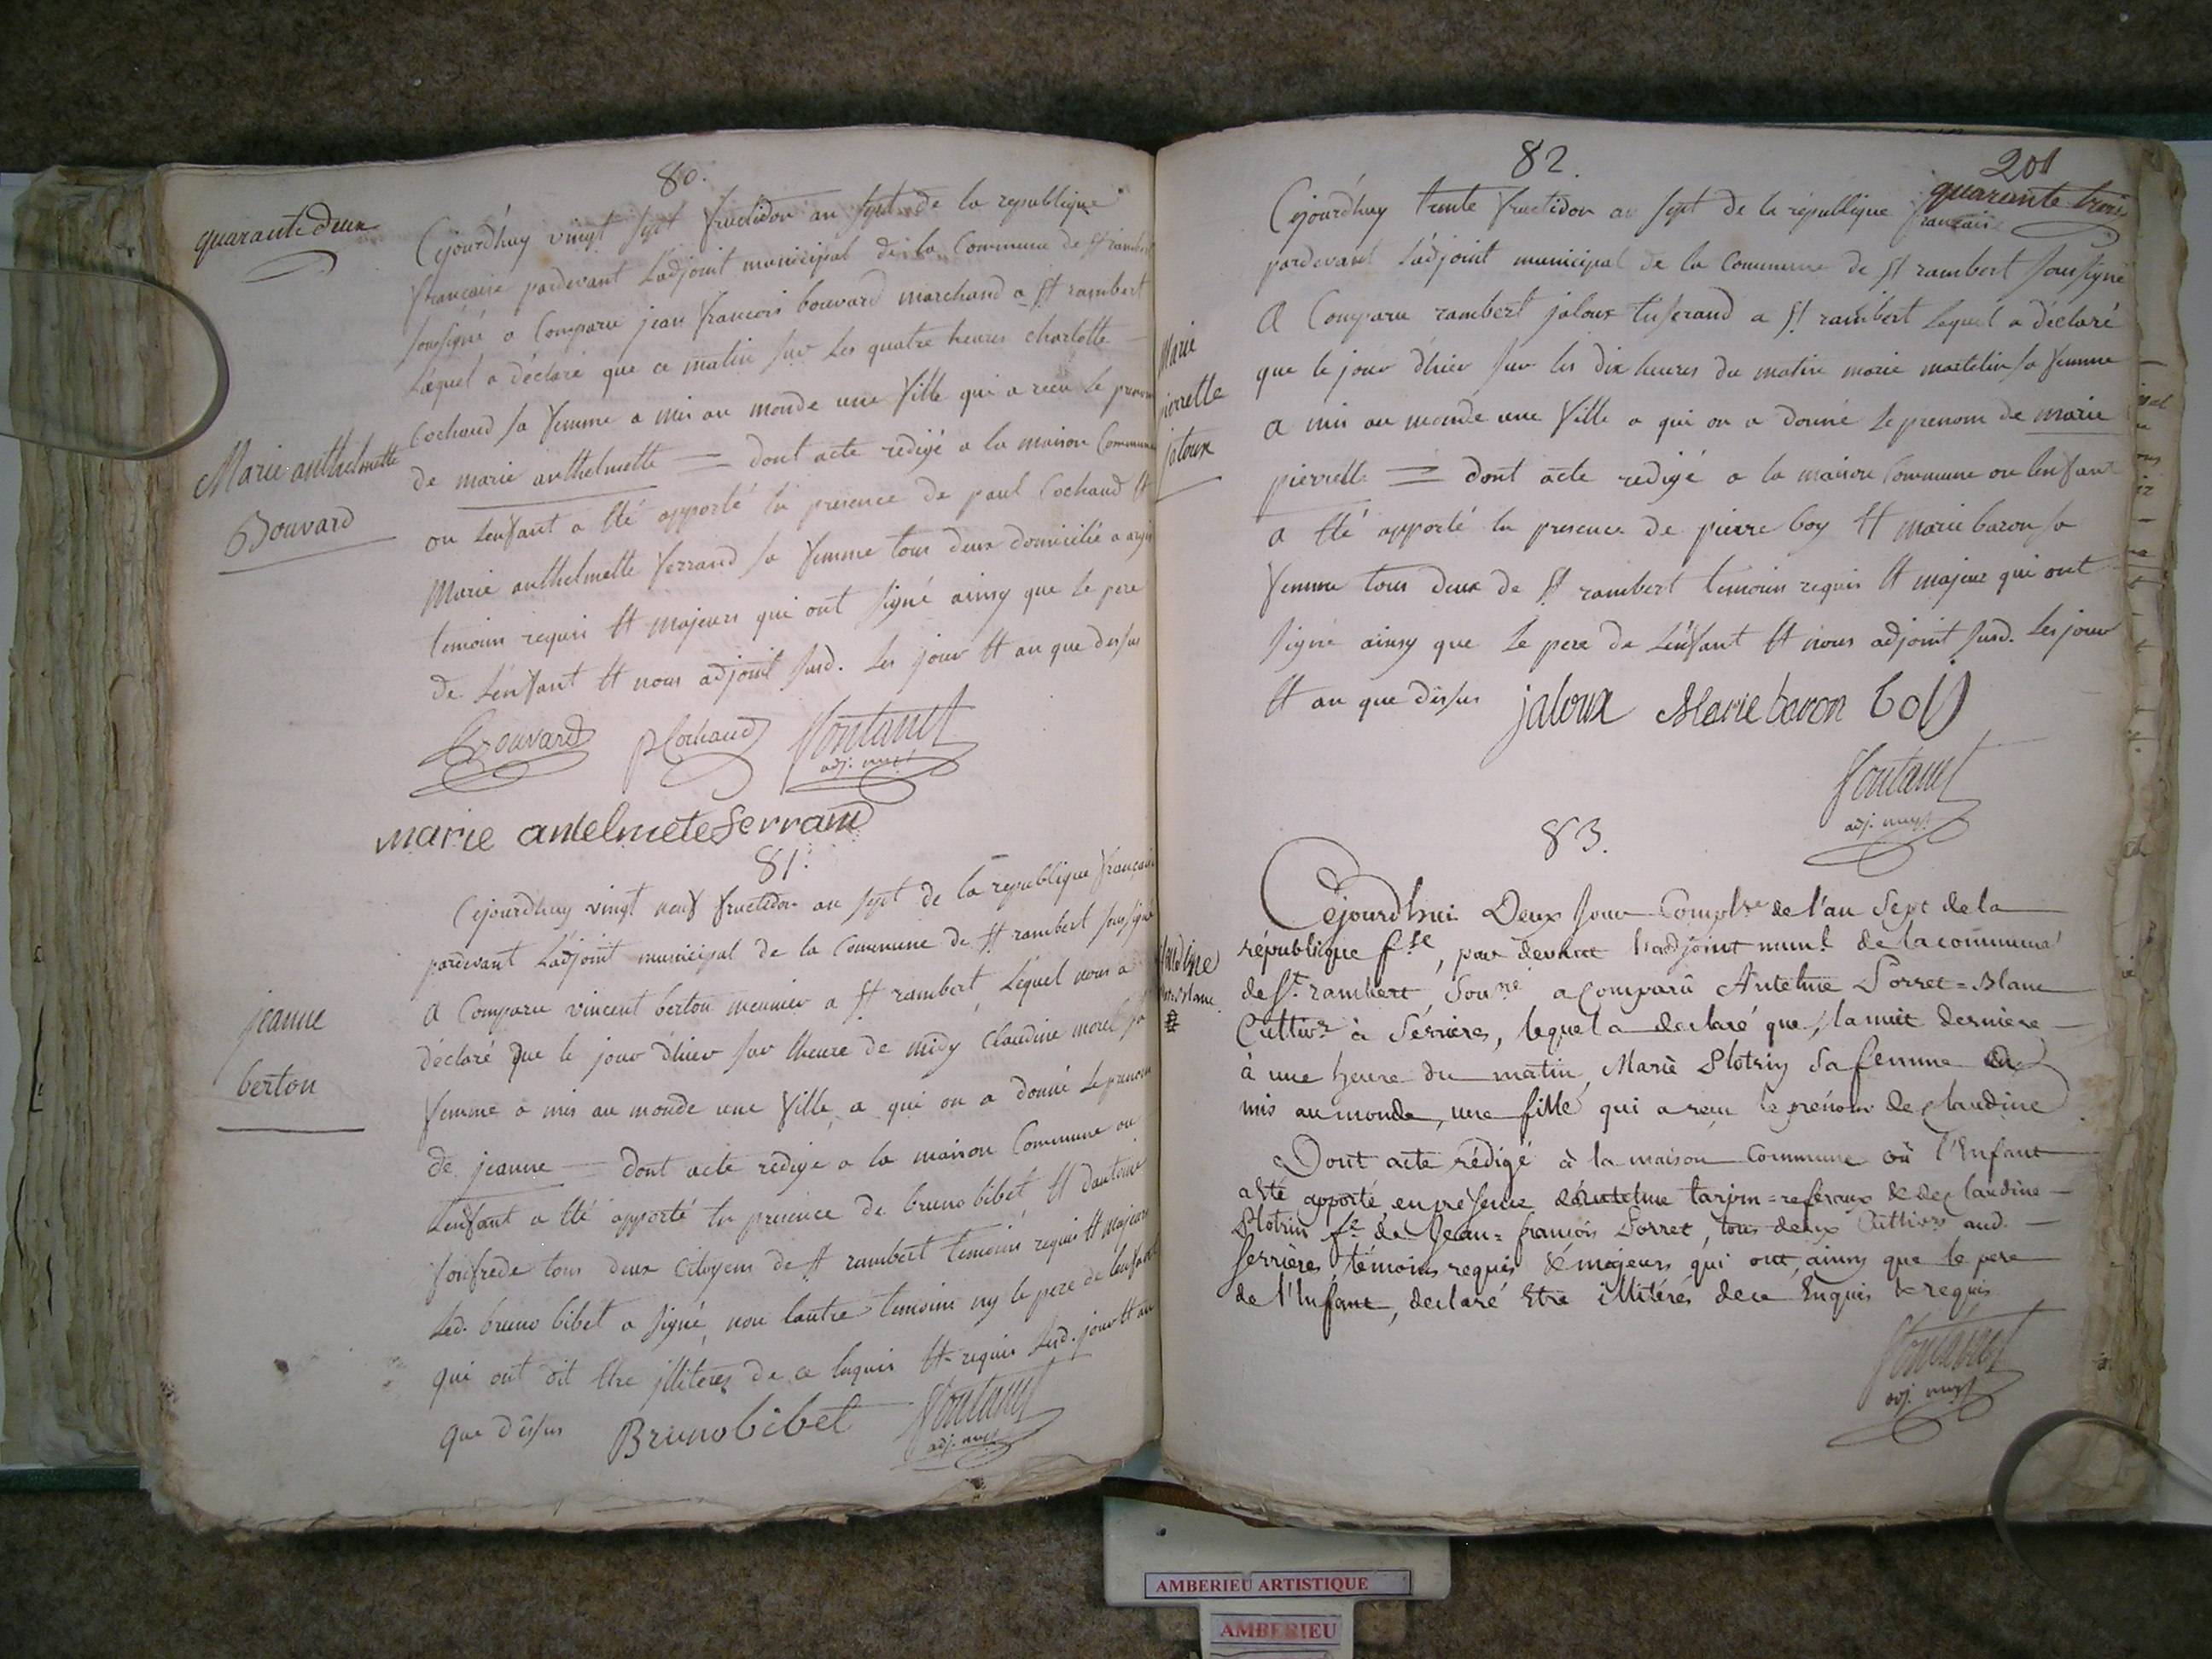 quarante deux
80.
Cejourd'huy vingt sept fructidor an sept de la republique
française pardevant L'adjoint municipal de la Commune de St rambert
soussigné a Comparu jean françois bouvard marchand a St rambert
Lequel a déclaré que ce matin sur les quatre heures charlotte
Cochaud sa femme a mis au monde une fille qui a recu le prenom
de marie anthelmette = dont acte redigé a la maison Commune
ou L'enfant a été apporté en presence de paul Cochaud et
Marie anthelmette ferrand sa femme tous deux domicilié a
temoins requis et majeurs qui ont signé ainsy que le pere
de L'enfant et nous adjoint susd. Les jour et an que dessus
Marie anthelmette
Bouvard
Bouvard P Cochaud Fontanet
adj. mupl
marie antelmete Ferrand
81.
Cejourd'huy vingt neuf fructidor an sept de la republique française
pardevant L'adjoint municipal de la Commune de St rambert soussigné
A Comparu vincent berton meunier a St rambert Lequel nous a
déclaré que le jour d'hier sur lheure de midy Claudine morel sa
femme a mis au monde une fille, a qui on a donné Le prenom
de jeanne = dont acte redigé a la maison Commune ou
L'enfant a été apporté en presence de bruno bibet et
tous deux Citoyens de St rambert temoins requis et majeurs
Led. bruno bibet a signé, non lautre temoins ny le pere de lenfant
qui ont dit être illiteres de ce enquis et requis Susd. jour et an
que dessus Bruno bibet Fontanet
adj. mupl
jeanne
berton
82.
201
quarante trois
Cejourd'huy trente fructidor an sept de la république française
pardevant L'adjoint municipal de la Commune de St rambert soussigné
A Comparu rambert jaloux tisserand a St rambert Lequel a déclaré
que le jour d'hier sur les dix heures du matin marie martelin sa femme
a mis au monde une fille a qui on a donné Le prenom de marie
pierrette = dont acte redigé a la maison Commune ou lenfant
a été apporté en presence de pierre boy et marie baron sa
femme tous deux de St rambert temoins requis et majeur qui ont
signé ainsy que le pere de L'enfant et nous adjoint susd. Les jour
et an que dessus jaloux Marie baron boy
Marie
pierrette
jaloux
Fontanet
adj. mupl
83.
Cejourd'hui Deux jour Complre de l'an Sept de la
république fse, par devant l'adjoint munl de la commune
de St. rambert Souné a Comparû Antelme Porret=Blanc
Cultivr à Sérrieres, lequel a declaré que, la nuit derniere
à une heure du matin, Marie Plotrin Sa femme a
mis au monde, une fille qui a reçu le prénom de Claudine
Dont acte rédigé à la maison Commune où l'Enfant
a été apporté en présence d'Antelme & de Claudine
Plotrin fe de Jean=françois Porret, tous deux Cultivrs aud.
Serrières témoins requis & majeurs qui ont, ainsy que le pere
de l'Enfant, declaré Etre illitérés de ce Enquis & requis
Claudine
#
Fontanet
adj. mupl
AMBERIEU ARTISTIQUE
AMBERIEU